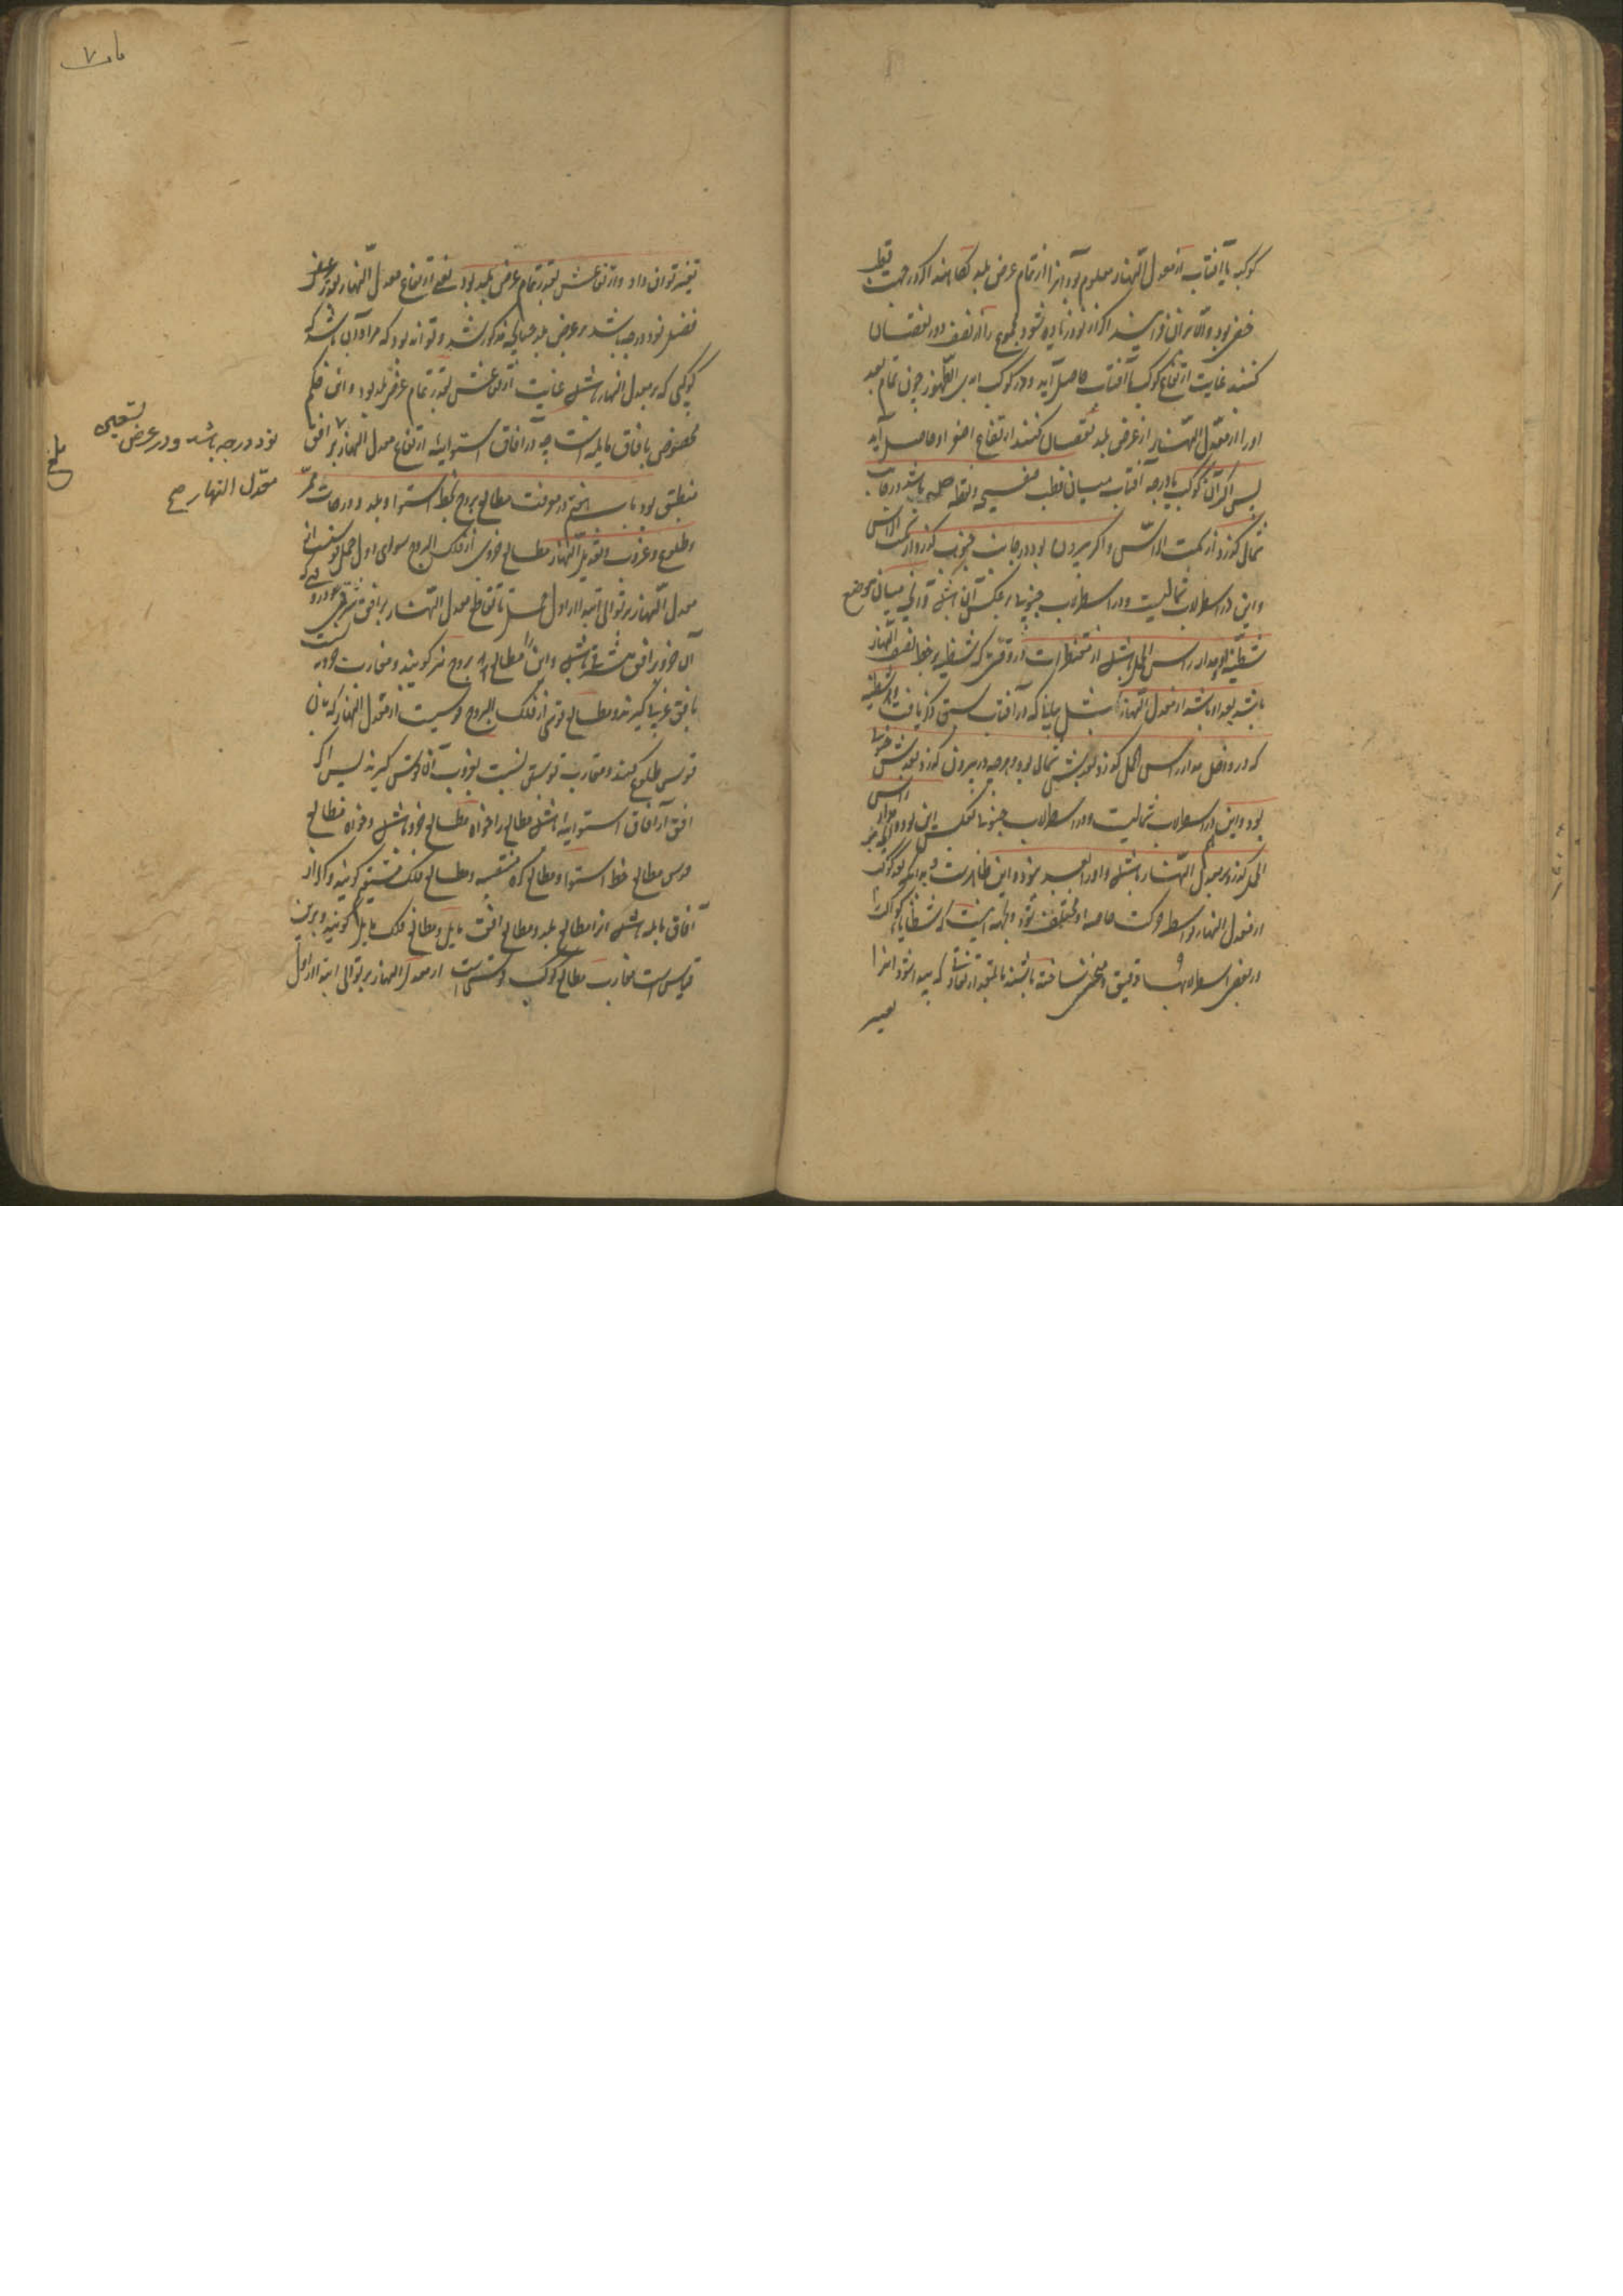 کوکب یا آفتاب از معدل النهار معلوم بود آنرا از تمام عرض بلد بکاهند اگر در جهت قطب
خفی بود والا بر آن افزایند اگر از نود زیاده شود مجموع را از نصف دور نقصان
کنند غایت ارتفاع کوکب یا آفتاب حاصل آید و در کوکب ابدی الظهور چون تمام بعد
او را از معدل النهار از عرض بلد نقصان کنند ارتفاع اصغر او حاصل آید
پس اگر آن کوکب یا درجه آفتاب میان قطب صفیحه و نقطه باشد در جانب
شمال گذرد از سمت الراس و اگر بیرون بود در جانب جنوب گذرد از سمت الراس
و این در اسطرلاب شمالیست و در اسطرلاب جنوبی بر عکس آن باشد و آنچه میان موضع
شظیه و مدار راس الحمل باشد از مقنطرات در وقتی که شظیه بر خط نصف النهار
باشد بعد او باشد از معدل النهار چنانکه در آفتاب سبق ذکر یافت و اگر شظیه
که درو داخل مدار راس الحمل گذرد بعدش شمالی بود و هر چه در بیرون گذرد بعدش جنوبی
بود و این در اسطرلاب شمالیست و در اسطرلاب جنوبی بعکس این بود و آنچه بر مدار راس
الحمل گذرد بر معدل النهار باشد و او را بعد نبود و این ظاهرست و بدانکه بعد کوکب
از معدل النهار بواسطه حرکت خاصه او مختلف شود و بجهت اینست که شظایای کواکب را
در بعضی اسطرلابها دقیق و منحنی ساخته باشند تا بقدر تفاوتی که پیدا شود آنرا
تغییر
تغییر توان داد و ارتفاعش بقدر تمام عرض بلد بود یعنی ارتفاع معدل النهار بقدر
فضل نود درجه باشد بر عرض بلد چنانچه مذکور شد و تواند بود که مراد آن باشد که
کوکبی که بر معدل النهار باشد غایت ارتفاعش بقدر تمام عرض بلد بود و این حکم
مخصوص بآفاق مایله است چه در آفاق استوائیه ارتفاع معدل النهار بر افق
منطبق بود باب پنجم در معرفت مطالع بروج بخط استوا و بلد و درجات ممر
و طلوع و غروب و تعدیل النهار مطالع جزوی از فلک البروج سوای اول حمل قوسیست از
معدل النهار بر توالی ابتدا از اول حمل تا تقاطع معدل النهار بر افق شرقی در وقتی که
آن جزو بر افق شرقی باشد و این را مطالع بروج نیز گویند و مغارب جزو
بافق غربی گیرند و مطالع قوسی از فلک البروج قوسیست از معدل النهار که با آن
قوس طلوع کند و مغارب قوس نسبت بغروب آن قوس گیرند پس اگر
افق از آفاق استوائیه باشد مطالع را خواه مطالع جزو باشد و خواه مطالع
قوس مطالع خط استوا و مطالع کره منتصبه و مطالع فلک مستقیم گویند و اگر از
آفاق مایله باشد آنرا مطالع بلد و مطالع افق مایل و مطالع فلک مایل گویند و برین
قیاس است مغارب مطالع کوکب قوسی است از معدل النهار بر توالی ابتدا از اول
تسعین
نود درجه باشد و در عرض
معدل النهار صح